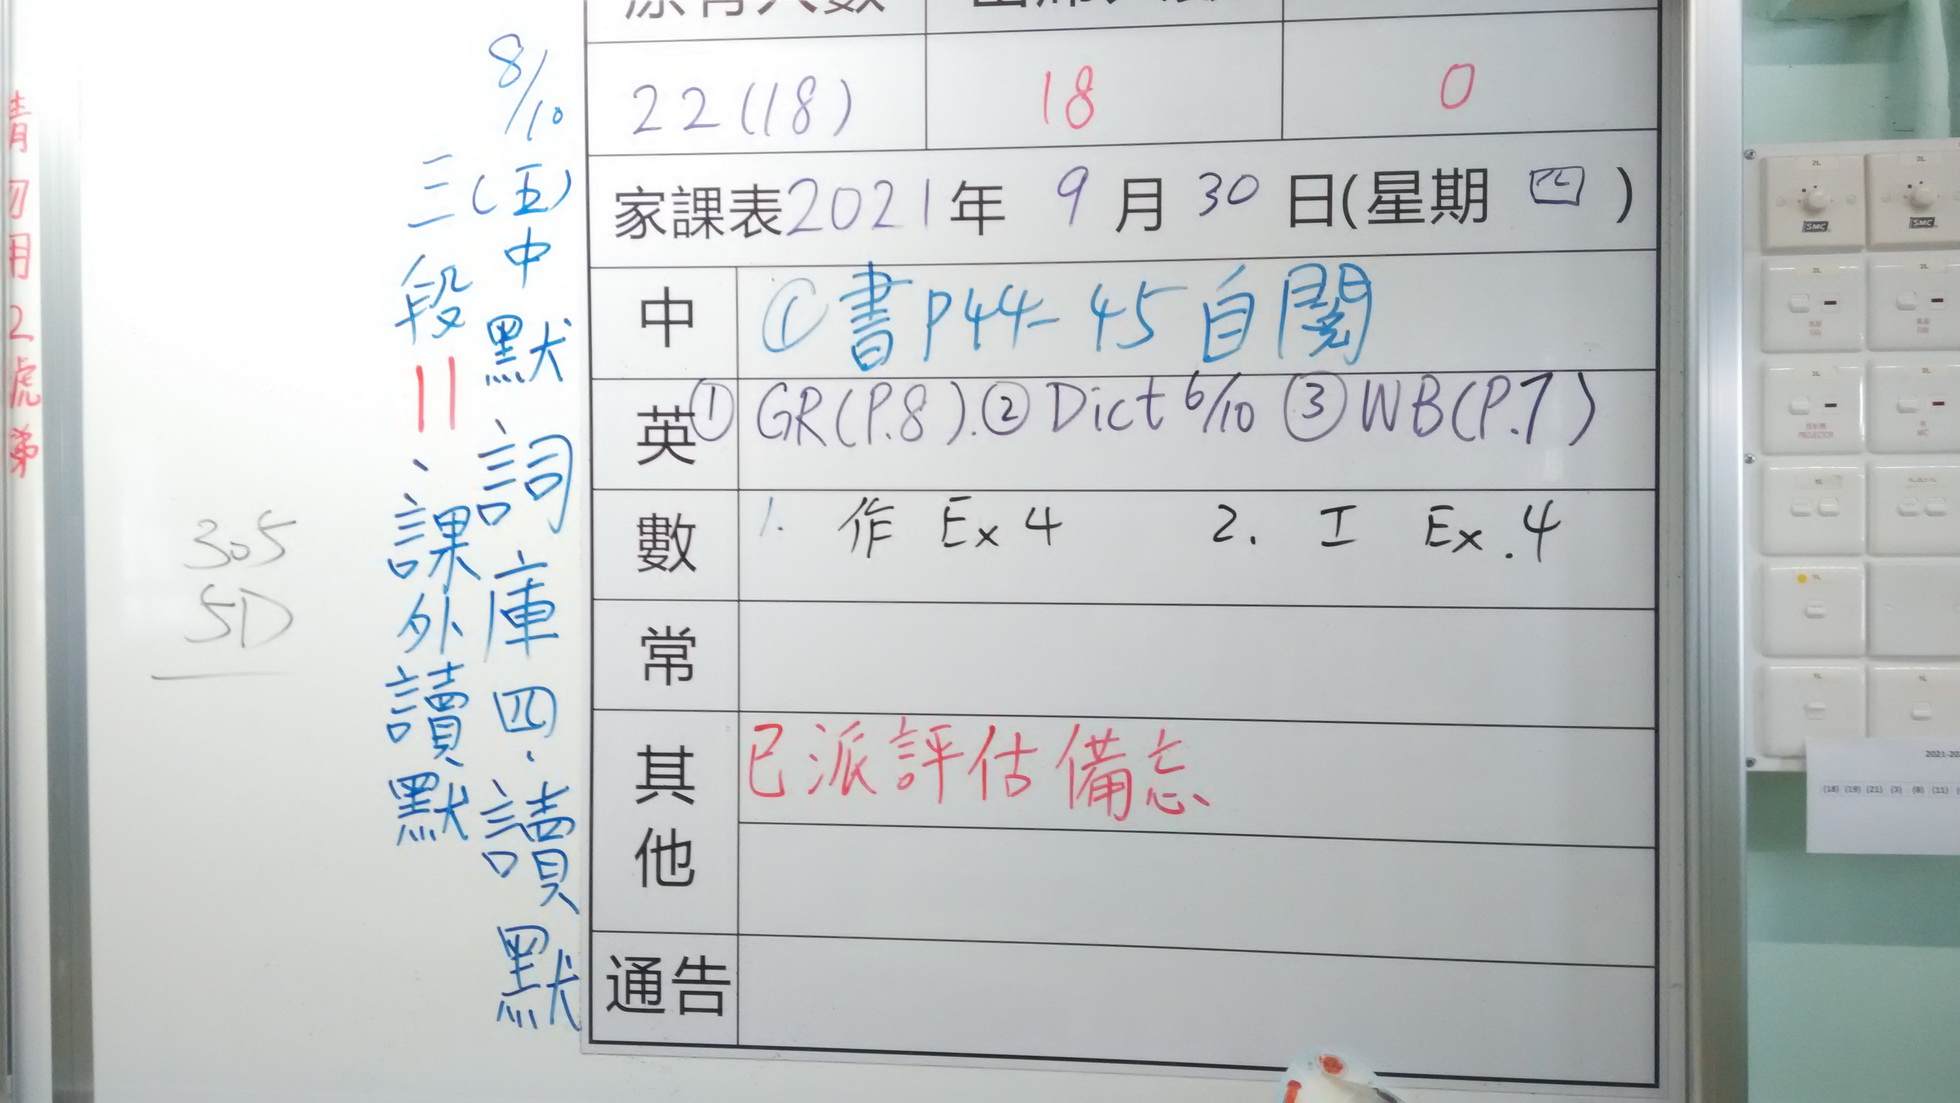 22(18) 18 0
家課表2021年 9月30日(星期四)
中 ①書P44-45自閱
英 ①GR(P.8).②Dict 6/10 ③WB(P.7)
數 1. 作 Ex 4 2. 工 Ex.4
常
其他 已派評估備忘
通告
8/10(五)中默、詞庫四、讀默
三段 11、課外讀默
305
5D
SMC
SMC
PROJECTOR
(18) (19) (21) (3) (8) (11)